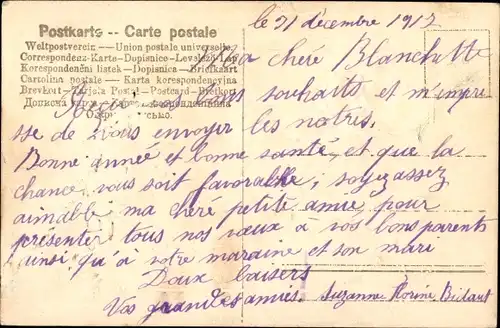 Postkarte -- Carte postale
Weltpostverein — Union postale universelle
Correspondenz-Karte - Dopisnice - Levelező-Lap
Korespondenční listek - Dopisnica - Briefkaart
Cartolina postale — Karta korespondencyjna
Brevkort - Post - Postcard - Brefkort
le 31 décembre 1912
Ma chère Blanchette
Reçois vos souhaits et m'empre
sse de vous envoyer les notres.
Bonne année et bonne santé, et que la
chance vous soit favorable, soyez assez
aimable ma chère petite amie, pour
présenter tous nos vœux à vos bons parents
ainsi qu'à votre maraine et son mari
Doux baisers
Vos grandes amies. Suzanne Florine Bidaut